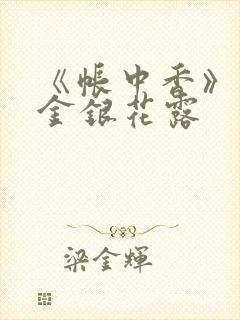 《帐中香》
金银花露
梁金辉